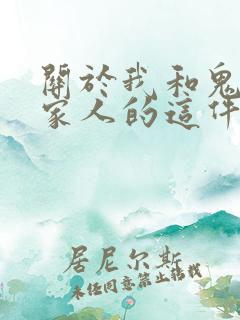 關於我和鬼
家人的這件
居尼尔斯
未经同意禁止转载